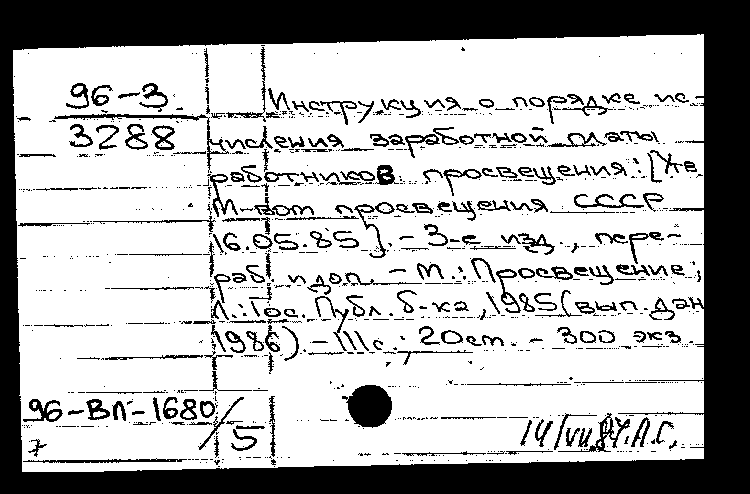 96-3
3288
Инструкция о порядке ис-
числения заработной платы
работников просвещения: [Утв
М-вом просвещения СССР
16.05.85]. - 3-е изд., пере-
раб. и доп. - М.: Просвещение;
Л.: Гос. Публ. б-ка, 1985 (вып. дан
1986). - 111 с.; 20 см. - 300 экз.
96-Вл-1680/5
7
14/VII.87.А.С.